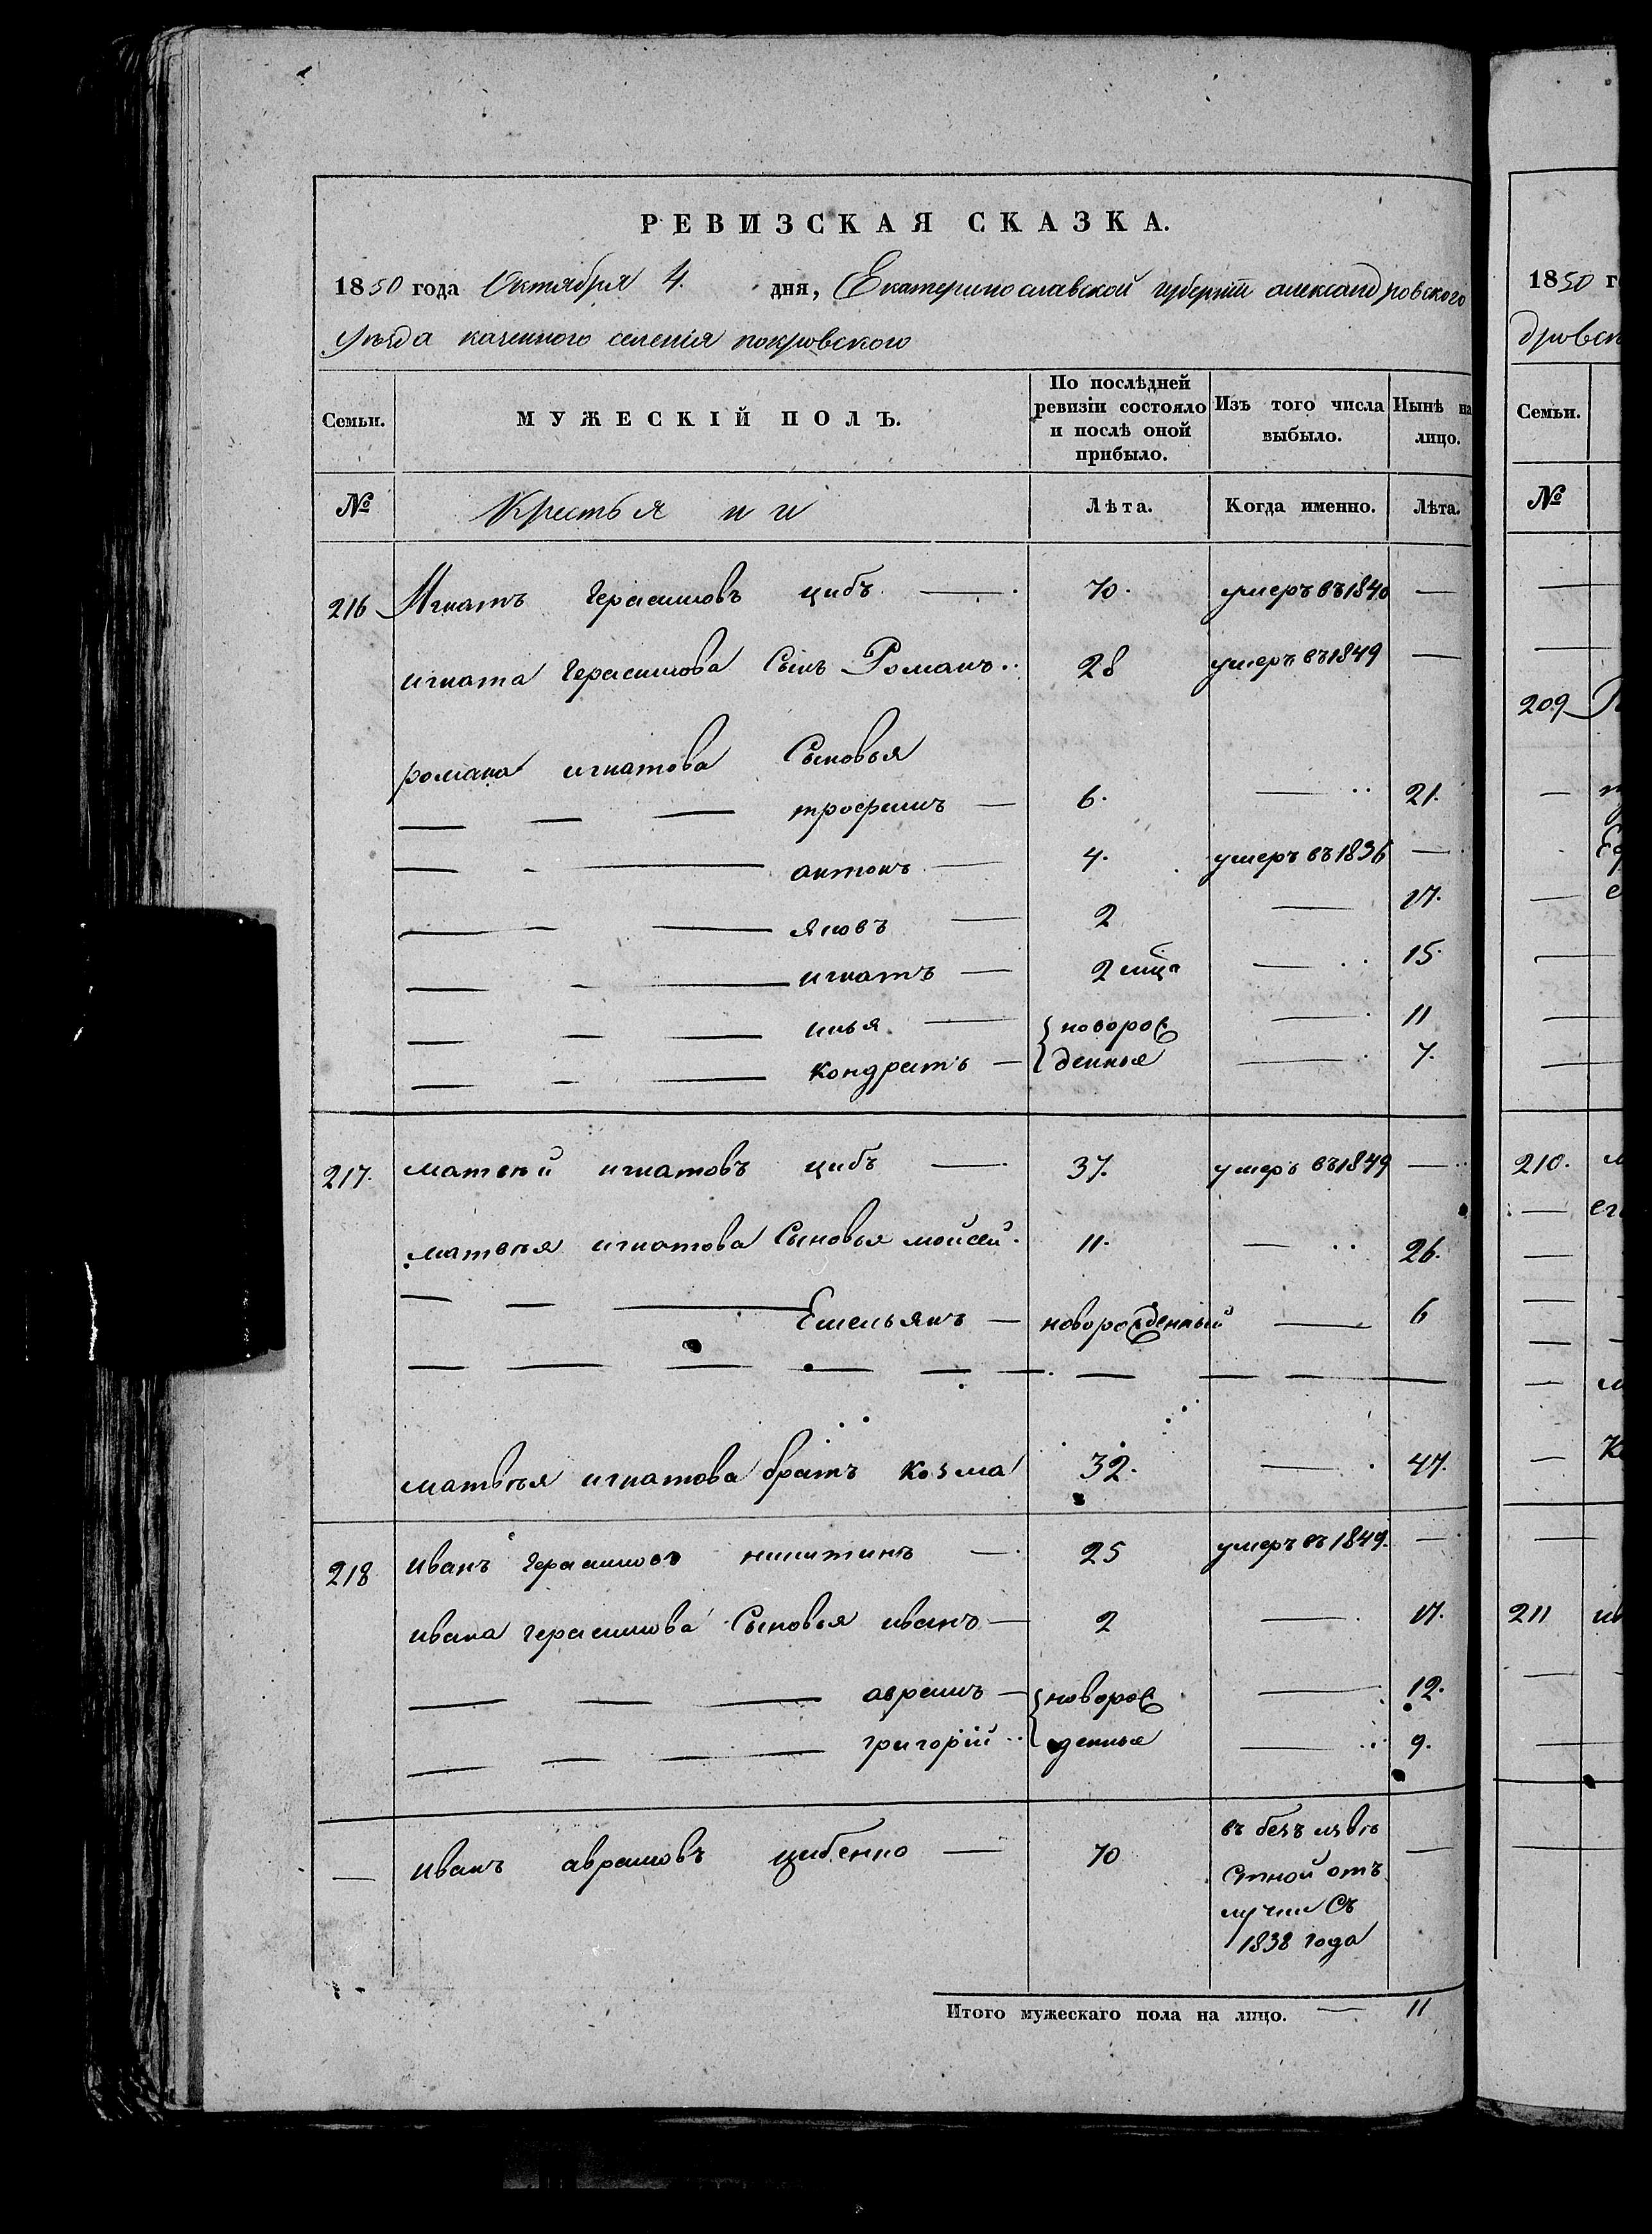 РЕВИЗСКАЯ СКАЗКА.
1850 года Октября 4. дня, Екатеринославской губерніи александровского
Уѣзда казенного селенія покровского
Семьи. МУЖЕСКІЙ ПОЛЪ. По послѣдней ревизіи состояло и послѣ оной прибыло. Изъ того числа выбыло. Нынѣ на лицо.
№ Крестьяни Лѣта. Когда именно. Лѣта.
216 Игнатъ Герасимовъ цибъ — 70. умеръ въ 1840 —
игната Герасимова Сынъ Романъ 28 умеръ въ 1849 —
романа игнатова Сыновья
— — — трофимъ — 6. — 21.
— — антонъ — 4. умеръ въ 1836 —
— — — яковъ — 2 — 17.
— — — игнатъ — 2 мца — 15.
— — — илья — { новорож — 11
— — — кондратъ — { денные — 7.
217. матвей игнатовъ цибъ — 37. умеръ въ 1849 —
матвея игнатова Сыновья мойсей 11. — 26.
— — — Емельянъ — новорожденный — 6
матвѣя игнатова братъ козма 32. — 47.
218 иванъ герасимовъ никитинъ — 25 умеръ въ 1849. —
ивана герасимова Сыновья иванъ — 2 — 17.
— — — аврамъ — { новорож — 12.
— — — григорій { денные — 9.
— иванъ аврамовъ цибенко — 70 въ безъ извѣ —
стной отъ
лучки Съ
1838 года
Итого мужескаго пола на лицо. — 11
1850 г
дровск
Семьи.
№
209
210.
211